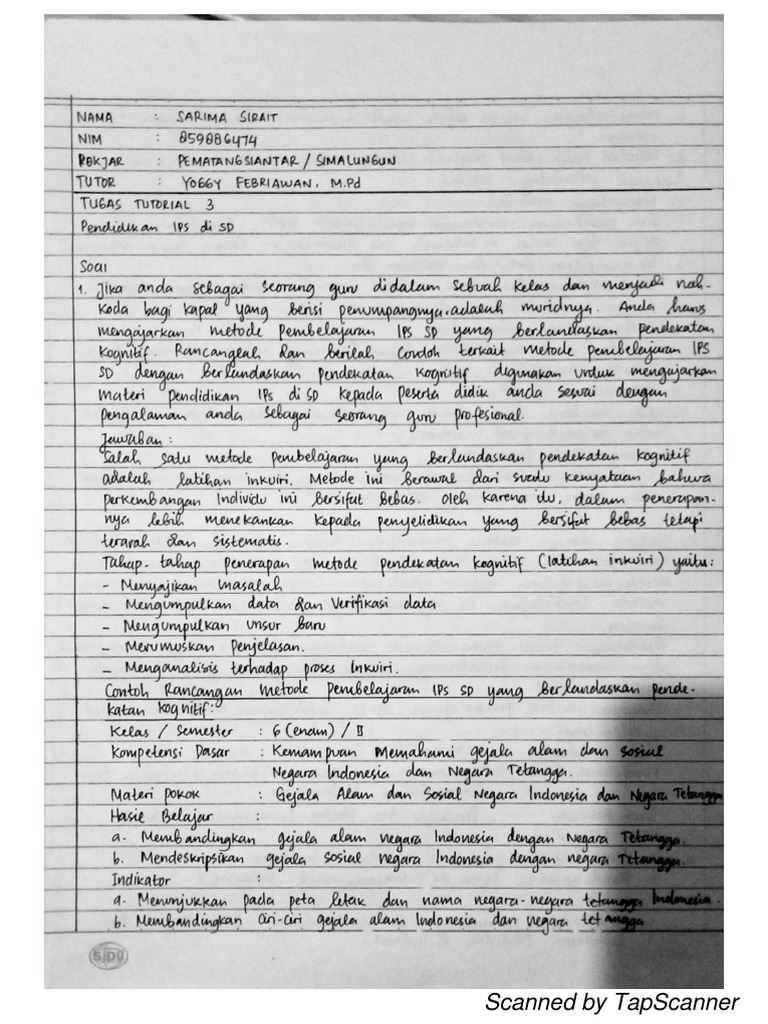 NAMA : SARIMA SIRAIT
NIM : 859886474
POKJAR : PEMATANGSIANTAR / SIMALUNGUN
TUTOR : YOGGY FEBRIAWAN, M.Pd
TUGAS TUTORIAL 3
Pendidikan IPS di SD
Soal
1. Jika anda sebagai seorang guru didalam sebuah kelas dan menjadi nah-
koda bagi kapal yang berisi penumpangnya adalah muridnya. Anda harus
mengajarkan metode Pembelajaran IPS SD yang berlandaskan pendekatan
kognitif. Rancanglah dan berilah contoh terkait metode pembelajaran IPS
SD dengan berlandaskan pendekatan kognitif digunakan untuk mengajarkan
materi pendidikan IPS di SD kepada peserta didik anda sesuai dengan
pengalaman anda sebagai seorang guru profesional.
Jawaban :
Salah satu metode pembelajaran yang berlandaskan pendekatan kognitif
adalah latihan inkuiri. Metode ini berawal dari suatu kenyataan bahwa
perkembangan Individu ini bersifat bebas. Oleh karena itu, dalam penerapan-
nya lebih menekankan kepada penyelidikan yang bersifat bebas tetapi
terarah dan sistematis.
Tahap-tahap penerapan metode pendekatan kognitif (latihan inkuiri) yaitu:
- Menyajikan masalah
- Mengumpulkan data dan Verifikasi data
- Mengumpulkan unsur baru
- Merumuskan Penjelasan.
- Menganalisis terhadap proses Inkuiri.
Contoh Rancangan metode Pembelajaran IPS SD yang berlandaskan pende-
katan kognitif:
Kelas / Semester : 6 (enam) / II
Kompetensi Dasar : Kemampuan Memahami gejala alam dan sosial
Negara Indonesia dan Negara Tetangga.
Materi Pokok : Gejala Alam dan Sosial Negara Indonesia dan Negara Tetangga
Hasil Belajar :
a. Membandingkan gejala alam negara Indonesia dengan Negara Tetangga.
b. Mendeskripsikan gejala sosial negara Indonesia dengan negara Tetangga.
Indikator :
a. Menunjukkan pada peta letak dan nama negara-negara tetangga Indonesia.
b. Membandingkan Ciri-Ciri gejala alam Indonesia dan negara tetangga
SIDU
Scanned by TapScanner